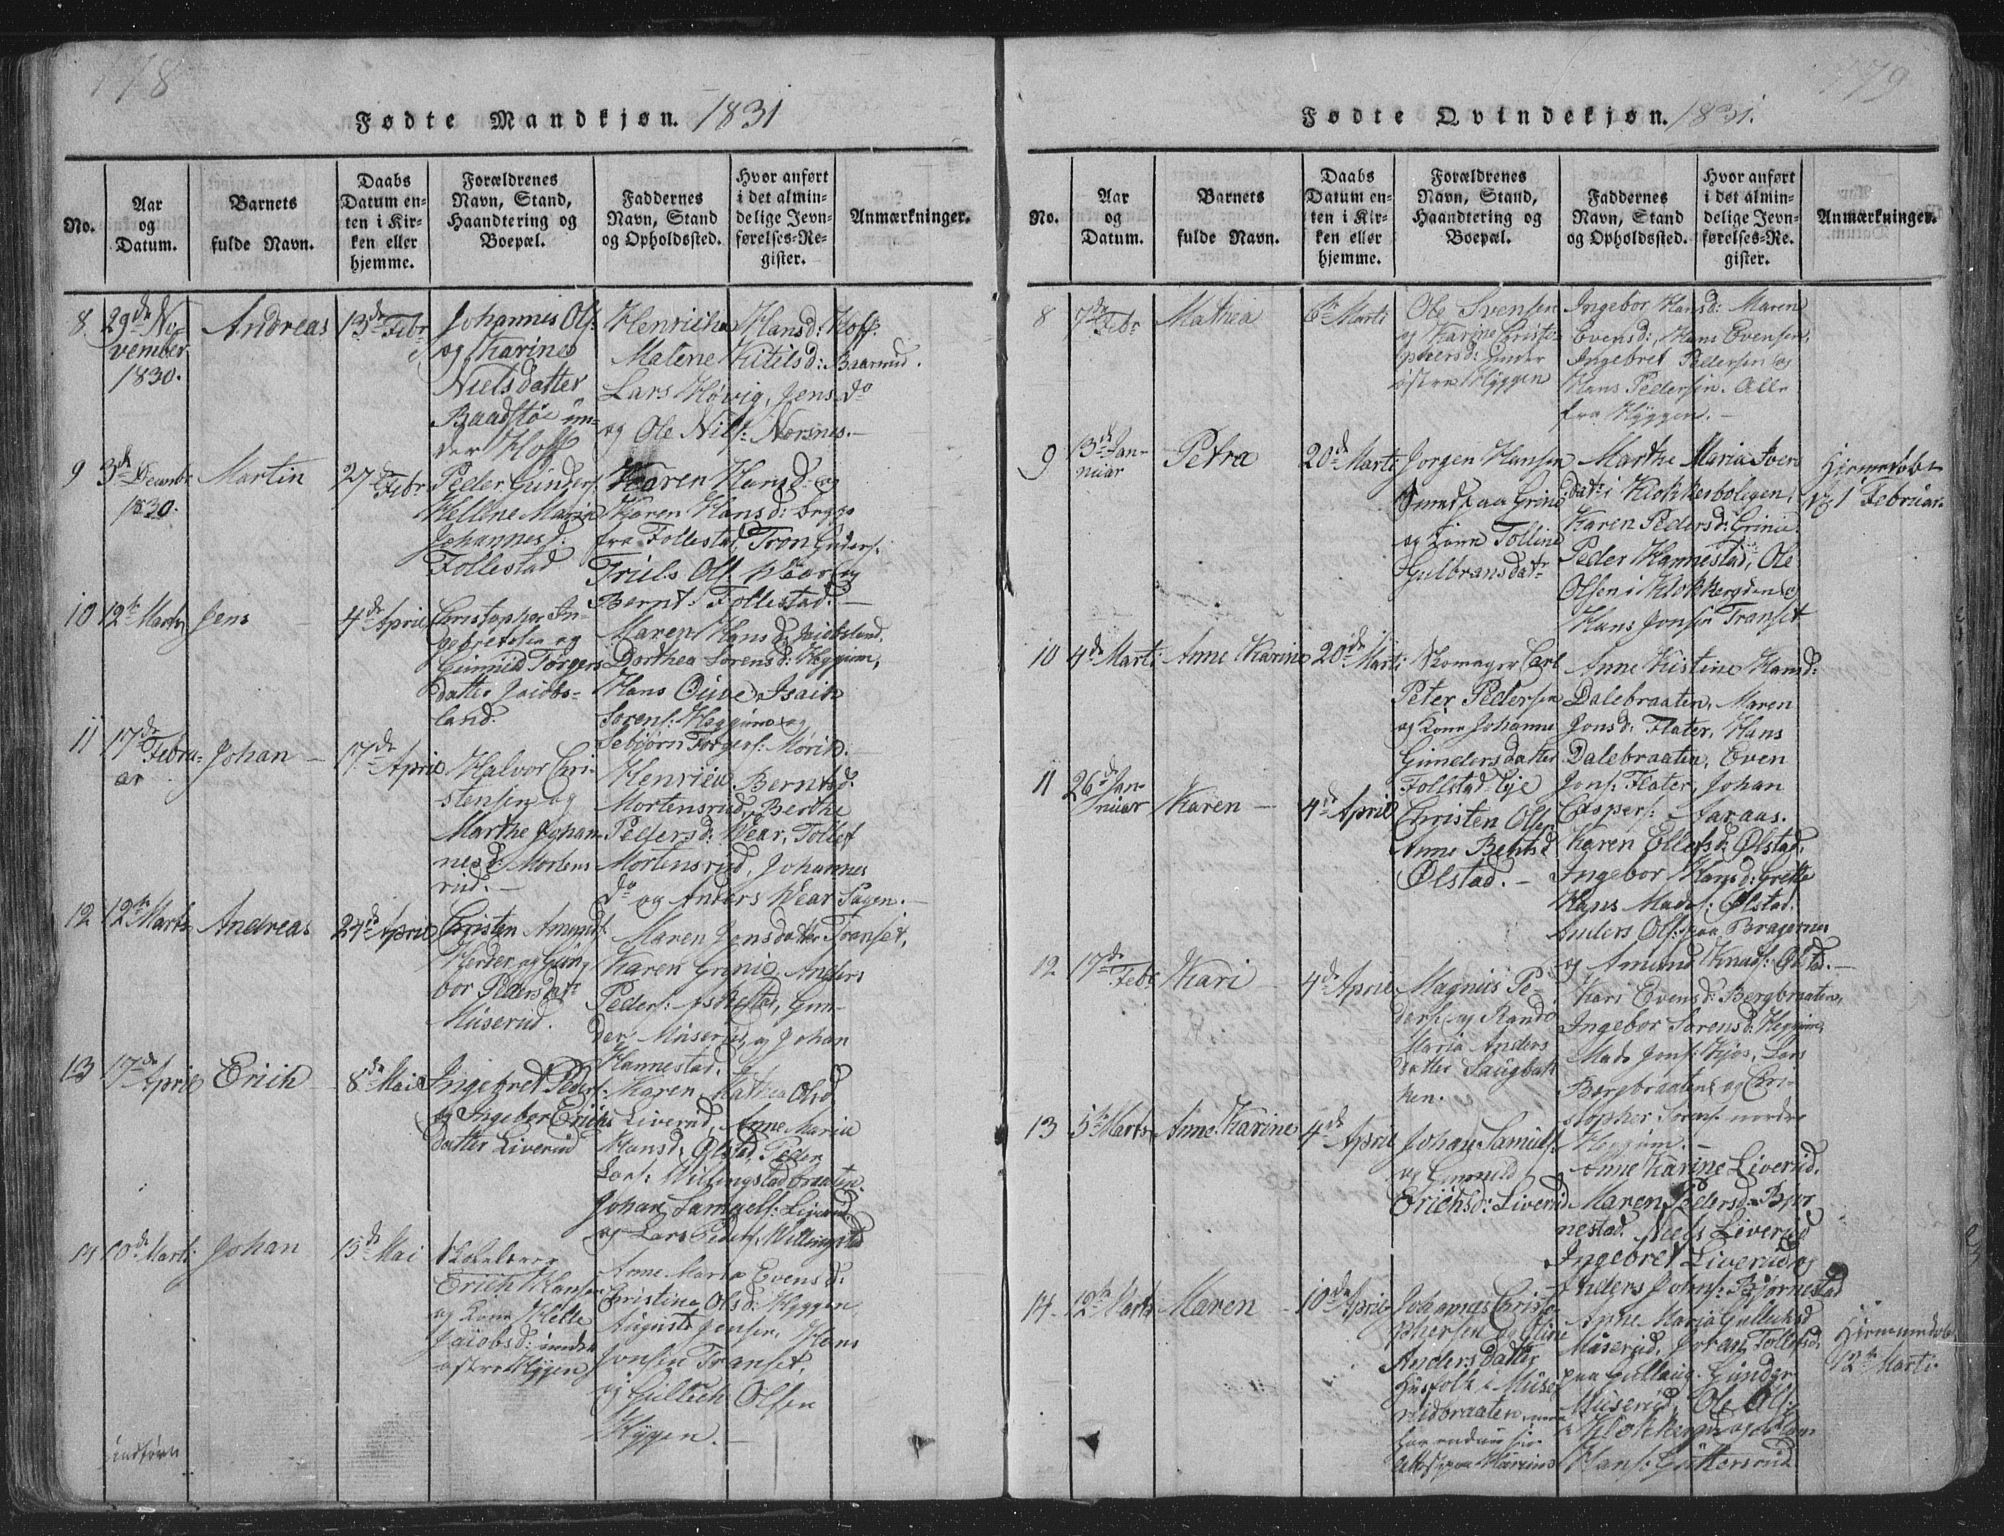 178
Fødte Mandkjøn. 1831
No.
Aar
og
Datum.
Barnets
fulde Navn.
Daabs
Datum en-
ten i Kir-
ken eller
hjemme.
Forældrenes
Navn, Stand,
Haandtering og
Boepæl.
Faddernes
Navn, Stand
og Opholdssted.
Hvor anført
i det almin-
delige Jevn-
førelses-Re-
gister.
Anmærkninger.
8
29de No-
vember
1830.
Andreas
13de Febr
Johannes Ols:
og Karine
Nielsdatter
Baadstøe un-
der Hoff
Henriche Hansd: Hoff
Matene Kitilsd: Baarrud.
Lars Høvig, Jens do
og Ole Nils: Nersnes.
9
3de Decembr
1830.
Martin
27de Febr
Peder Gunders:
Hellene Maria
Johannesd:
Follestad
Karen Hansd: og
Karen Hansd: begge
fra Follestad, Tron Gunders:
Ols: Wear og
Bernt: Follestad.
10
12te Marts
Jens
4de April
Christopher In-
gebretsen og
Gunnild Torgers
datter Jacobs-
land.
Maren Hansd: Jacobsland,
Dorthea Sorensd: Heggum,
Hans
Sorens: Heggum og
Torgers: Mørik.
11
17de Febru-
ar
Johan
17de April
Halvor Chri-
stensen og
Marthe Johan-
nesd: Mortens
rud.
Henrica Berntsd:
Mortensrud, Berthe
Pedersd: Wear, Tollef
Mortensrud, Johannes
do og Anders Wear Sagen.
12
12te Marts
Andreas
24de April
Christen Amunds:
og Gun-
bor Pedersdatr
Muserud.
Maren Jensdatter Transet,
Karen Grinie, Anders
Peders: Askestad, Gun-
der Muserud og Johan
Hannestad.
13
17de April
Erich
8de Mai
Ingebret Peders:
og Ingebor Erichs
datter Liverud
Karen Mathea Olsd
Liverud, Anne Maria
Hansd: Ølstad, Peder
Lars: Willingstadbraaten.
Johan Samuels: Liverud
og Lars Peders: Willingstad
14
10de Marts
Johan
15de Mai
Erich Hansen
og Kone Helle
Jacobsd: under
østre Hyggen
Anne Maria Evensd:
Christina Olsd: Hyggen
August Jensen, Hans
Jonsen Transet,
og Gullich Olsen
Hyggen.
indført
179
Fødte Qvindekjøn. 1831.
No.
Aar
og
Datum.
Barnets
fulde Navn.
Daabs
Datum en-
ten i Kir-
ken eller
hjemme.
Forældrenes
Navn, Stand,
Haandtering og
Boepæl.
Faddernes
Navn, Stand
og Opholdssted.
Hvor anført
i det almin-
delige Jevn-
førelses-Re-
gister.
Anmærkninger.
8
7de Febr
Mathea
6te Marts
Ole Svensen
og Karine Christo-
phersd: under
østre Hyggen
Ingebor Hansd: Maren
Evensd: Hans Evensen,
Ingebret Pedersen og
Hans Pedersen. Alle
fra Hyggen.
9
13de Jan-
nuar
Petra
20de Marts
Jorgen Hansen
Smed paa Grinie
og Kone Talline
Gulbransdatr
Marthe Maria Iver
datr i Klokkerboligen,
Karen Pedersd: Grinie
Peder Hannestad, Ole
Olsen i Klokkergden og
Hans Jonsen Transet
Hjemmedøbt
1 Februar.
10
4de Marts
Anne Karine
20de Marts
Skomager Carl
Peter Pedersen
og Kone Johanne
Gundersdatter
Follstad Eje
Anne Kistine Hansd:
Dalebraaten, Maren
Jonsd: Flater, Hans
Dalebraaten, Even
Jons: Flater, Johan
Caspers: Aaraas.
11
26de Jan-
nuar
Karen
4de April
Christen Olsen
Anne Berthsd
Ølstad.
Karen Ellefsd: Ølstad,
Ingebor Hansd: Grette
Hans Mads: Ølstad.
Anders Ols: paa Bragernes
og Amund Knuds: Ølstad.
12
17de Febr
Kari
4de April
Magnus Pe-
ders: og Randi
Maria Anders
datter Saugbak
ken.
Kari Evensd: Bergbraaten,
Ingebor Sorensd: Heggum,
Mads Jons: Kjøs, Lars
Bergbraaten og Chri-
stopher Sorens: nordre
Heggum.
13
5te Marts
Anne Karine
4de April
Johan Samuels:
og Gunnild
Erichsd: Liverud
Anne Karine Liverud,
Maren Pedersd: Bjor
nestad. Niels Liverud
Ingebret Liverud og
Anders Johns: Bjørnestad
14
12te Marts
Maren
10de April
Johannes Christo-
phersen og Eline
Andersdatter
Husfolk i Muse-
rudbraaten,
Anne Maria Gullichsd
Muserud, Johan Tollefs:
paa Gullaug. Gunder
Muserud, Ole Ols:
i Klokkergden og
Hans: Guttersrud
Hjemmedøbt
12te Marts.